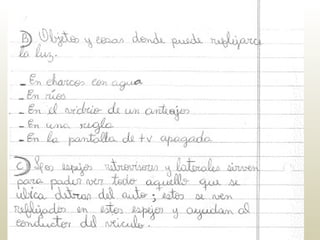 B) Objetos y cosas donde puede reflejarse
la luz.
- En charcos con agua
- En ríos
- En el vidrio de un anteojos
- En una regla
- En la pantalla de tv apagada.
C) Los espejos retrovisores y laterales sirven
para poder ver todo aquello que se
ubica detras del auto; estos se ven
reflejados en estos espejos y ayudan al
conductor del veiculo.